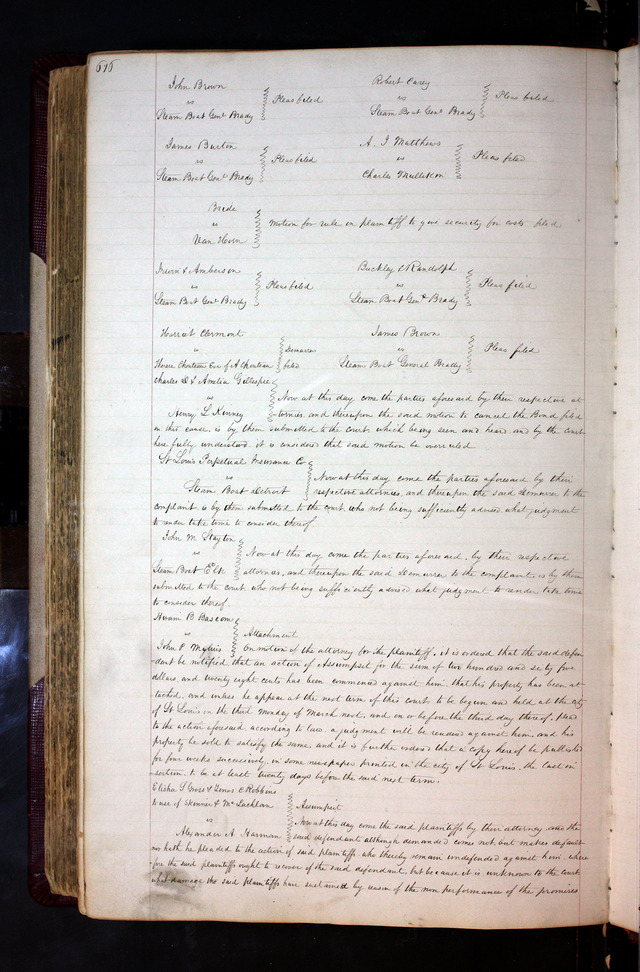 676
John Brown
vs } Pleas filed
Steam Boat Genl Brady
Robert Carey
vs } Pleas filed
Steam Boat Genl Brady
James Burton
vs } Pleas filed
Steam Boat Genl Brady
A. J Matthews
vs } Pleas filed
Charles Mullikin
Brade
vs } Motion for rule in plaintiff to give security for costs filed
Van Horn
Irwin & Amberson
vs } Pleas filed
Steam Boat Genl Brady
Buckley & Randolph
vs } Pleas filed
Steam Boat Genl Brady
Harriet Clermont
vs } Demurrer
Therese Chouteau Exr of A Chouteau } filed
James Brown
vs } Pleas filed
Steam Boat General Brady
Charles D & Amelia Gillespie
vs } Now at this day come the parties aforesaid by their respective at
Henry L Kinney } tornies, and thereupon the said motion to cancel the Bond filed
in this cause, is by them submitted to the court which being seen and heard and by the court
here fully understood it is considered that said motion be overruled
St Louis Perpetual Insurance Co
vs } Now at this day come the parties aforesaid by their
Steam Boat Detroit } respective attornies, and thereupon the said Demurrer to the
complaint, is by them submitted to the court who not being sufficiently advised what judgment
to render take time to consider thereof
John M Slayton
vs } Now at this day come the parties aforesaid, by their respective
Steam Boat Elk } attornies, and thereupon the said Demurrer to the complaint, is by them
submitted to the court, who not being sufficiently advised what judgment to render take time
to consider thereof.
Hiram B Bascom
vs } Attachment
John P } On motion of the attorney for the plaintiff, it is ordered that the said defen
dant be notified, that an action of Assumpsit for the sum of two hundred and sixty five
dollars, and twenty eight cents has been commenced against him, that his property has been at
tached, and unless he appear at the next term of this court to be begun and held at the city
of St Louis on the third Monday of March next, and on or before the third day thereof, plead
to the action aforesaid according to law a judgment will be rendered against him, and his
property be sold to satisfy the same and it is further ordered that a copy hereof be published
for four weeks successively, in some newspaper printed in the city of St Louis, the last in
sertion to be at least twenty days before the said next term.
Elisha S Gove & Zenas C Robbins
to use of Skinner & McLachlan } Assumpsit
vs } Now at this day come the said plaintiffs by their attorney and the
Alexander A Harman } said defendant although demanded comes not, but makes default
nor hath he pleaded to the action of said plaintiffs who thereby remain undefended against him, where
fore the said plaintiffs ought to recover of the said defendant, but because it is unknown to the court
what damage the said plaintiffs have sustained by reason of the non performance of the promises